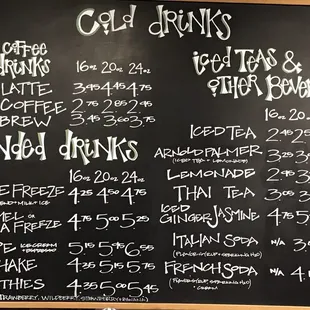 COLD DRINKS
COFFEE
DRINKS
16oz 20oz 24oz
LATTE 3.95 4.45 4.75
COFFEE 2.75 2.85 2.95
BREW 3.45 3.60 3.75
NDED DRINKS
16oz 20oz 24oz
E FREEZE 4.25 4.50 4.75
MEL OR
A FREEZE 4.75 5.00 5.25
PE ICE CREAM + ESPRESSO 5.15 5.45 6.55
HAKE 4.35 5.15 5.75
THIES 4.35 5.00 5.45
TRAWBERRY, WILDBERRY, STRAWBERRY + BANANA)
ICED TEAS &
OTHER BEVER
16oz 20
ICED TEA 2.45 2.5
ARNOLD PALMER 3.25 3.
(ICED TEA + LEMONADE)
LEMONADE 2.45
THAI TEA 3.05 3
ICED
GINGER JASMINE 4.75 5
ITALIAN SODA N/A 3.
FRENCH SODA N/A 4.
+ CREAM